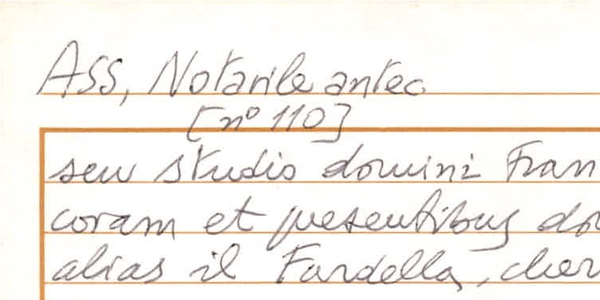 ASS, Notarile antec.
[nº 110]
seu studio domini Fran
coram et presentibus do
alias il Fardella, cher